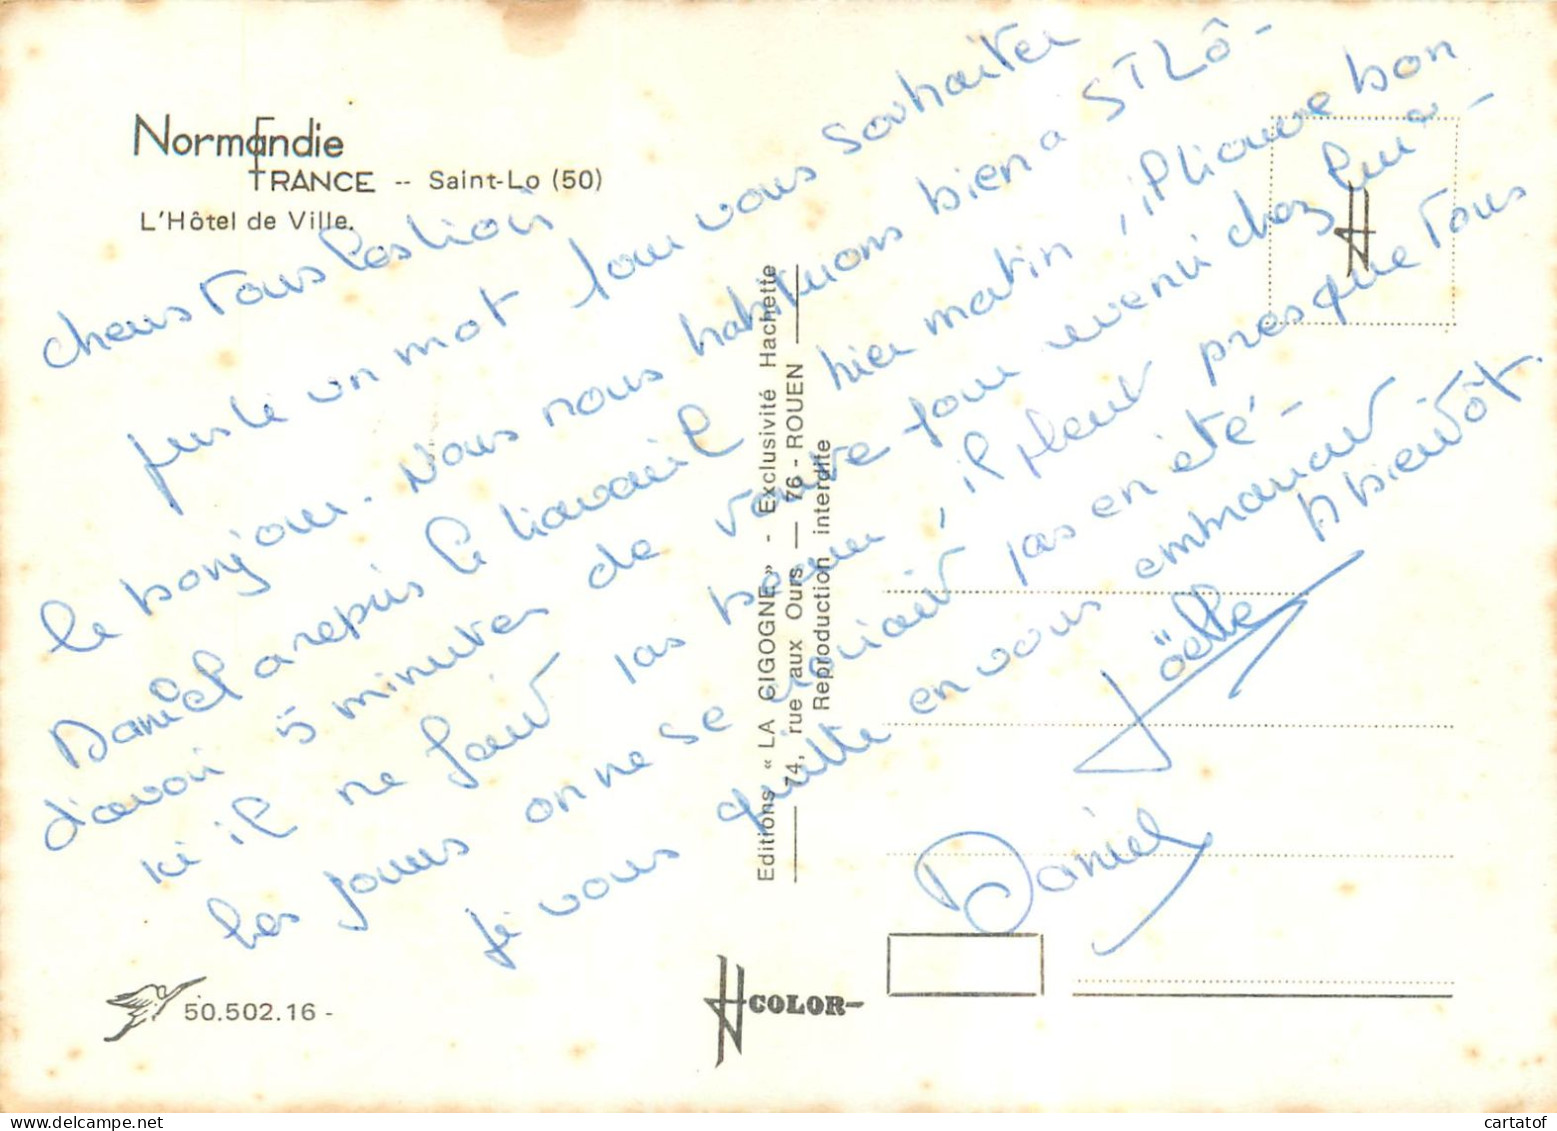 Normandie
FRANCE -- Saint-Lo (50)
L'Hôtel de Ville.
chers Tous
juste un mot pour vous souhaiter
le bonjour - Nous nous habituons bien a ST Lô -
Daniel a repris le travail hier matin, il trouve bon
d'avoir 5 minutes de route pour revenir chez lui -
ici il ne fait pas beau, il pleut presque Tous
les jours on ne se croirait pas en été -
je vous quitte en vous embrassant -
A bientôt.
Joëlle
Daniel
Editions « LA CIGOGNE » - Exclusivité Hachette
74, rue aux Ours — 76 - ROUEN
Reproduction interdite
50.502.16 -
COLOR
www.delcampe.net
cartatof